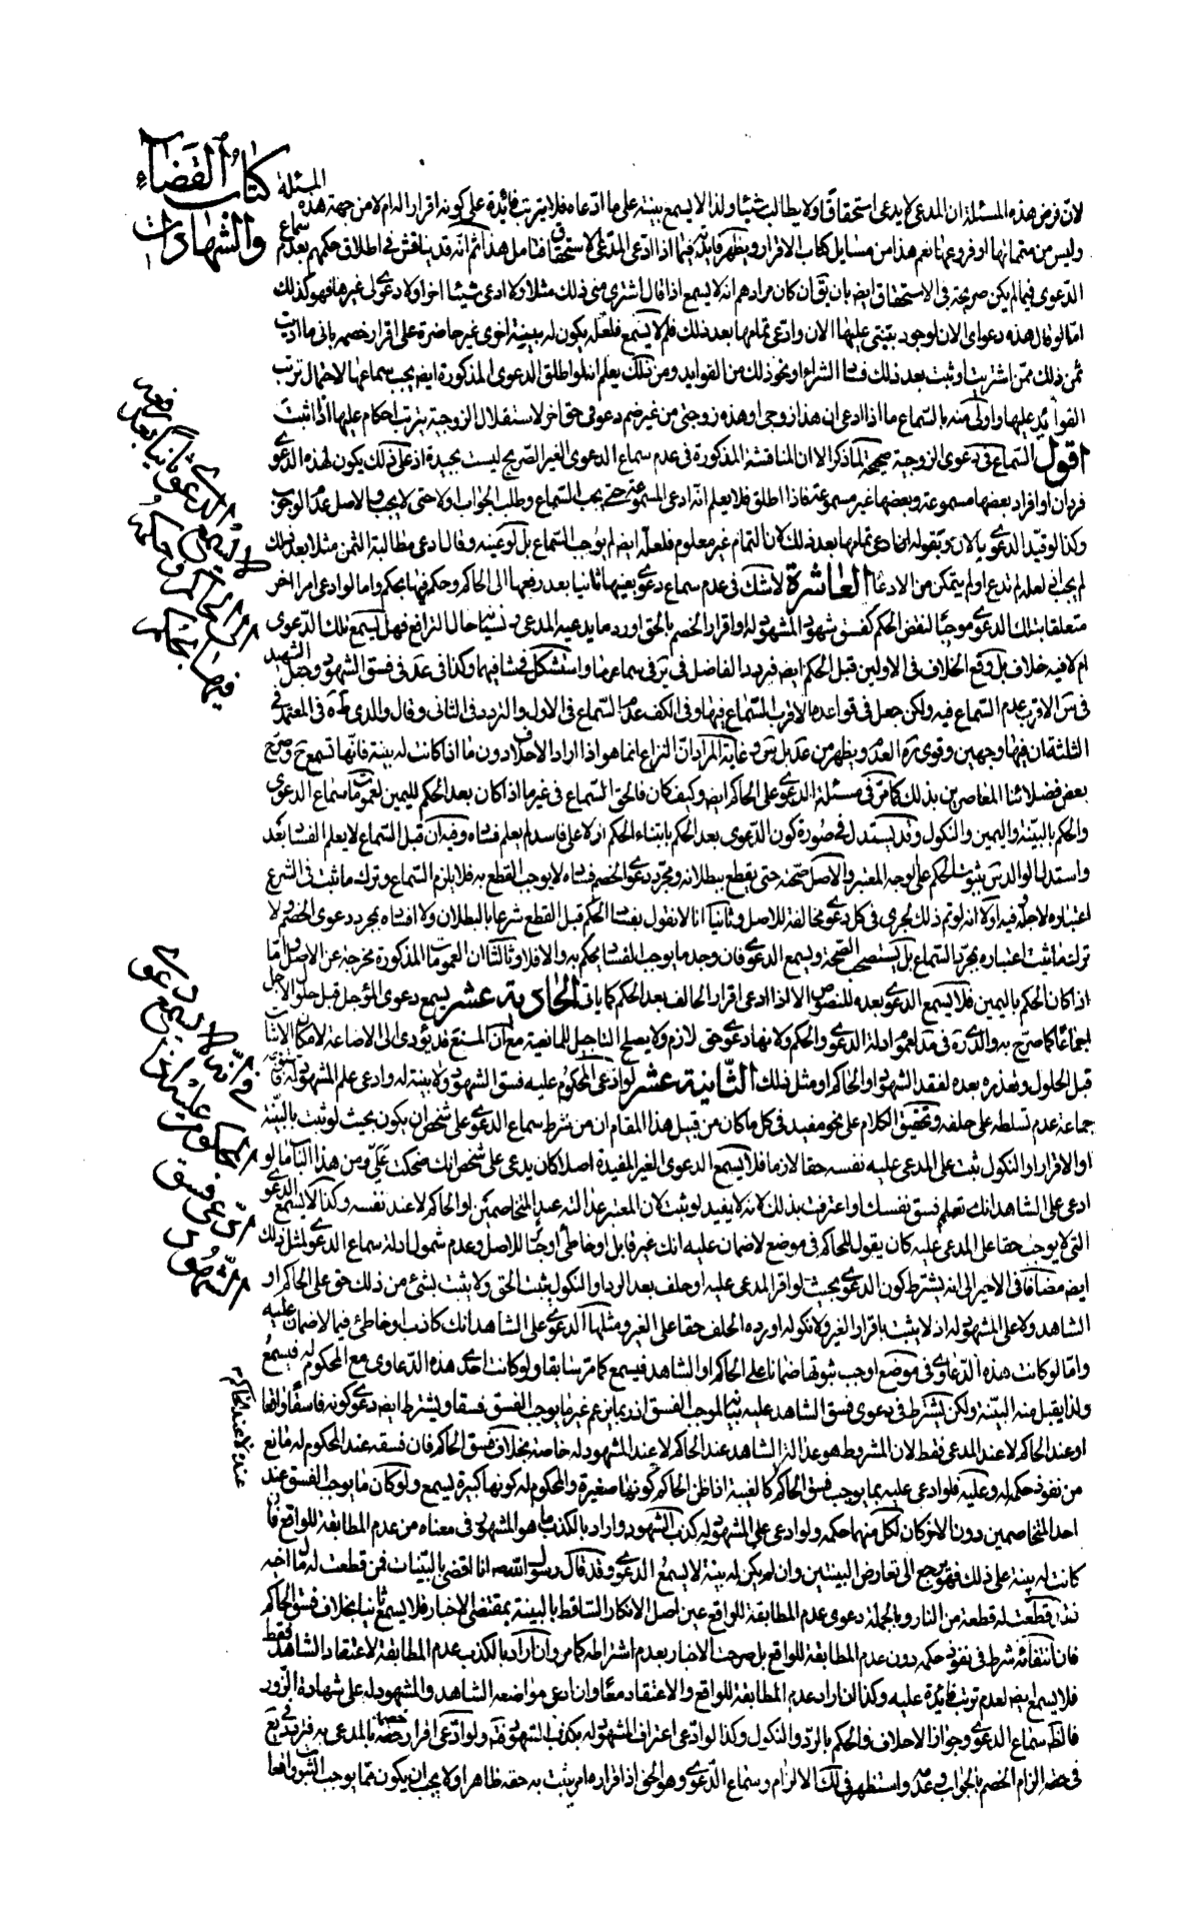 كتاب القضاء
والشهادات
لان فرض هذه المسئلة ان المدعى لا يدعى استحقاقا ولا يطالب شيئا ولذا لا يسمع بينة على ما ادعاه فلا يترتب فائدة على كونه اقرار الزام لا من جهة هذه المسئلة
وليس من متمماتها او فروعها نعم هذا من مسايل كتاب الاقرار ويظهر فايدته فيما اذا ادعى المدعى الاستحقاق فتامل هذا ثم انه قد يناقش فى اطلاق حكمهم بعدم سماع
الدعوى فيما لم يكن صريحة فى الاستحقاق ايضا بان يق ان كان مرادهم انه لا يسمع اذا قال اشترى منى ذلك مثلا ولا ادعى شيئا اخر ولا دعوى لى غيرها فهو كذلك
اما لو قال هذه دعواى الان لوجود بينتى عليها الان وادعى تمامها بعد ذلك فلم لا يسمع فلعله يكون له بينة اخرى غير حاضرة على اقرار خصمه بانى ما اديت
ثمن ذلك ممن اشتريت او ثبت بعد ذلك فساد الشراء او نحو ذلك من الفوايد ومن ذلك يعلم انه لو اطلق الدعوى المذكورة ايضا يجب سماعها لاحتمال ترتب
الفوائد عليها واولى منه بالسماع ما اذا ادعى ان هذا زوجى او هذه زوجتى من غير ضم دعوى حق اخر لاستقلال الزوجية بترتب احكام عليها اذا ثبت
اقول السماع فى دعوى الزوجية صحيح لما ذكر الا ان المناقشة المذكورة فى عدم سماع الدعوى الغير الصريح ليست بجيدة اذ على ذلك يكون لهذه الدعوى
فردان او افراد بعضها مسموعة وبعضها غير مسموعة فاذا اطلق فلا يعلم انه ادعى المسموعة حتى يجب السماع وطلب الجواب اولا حتى لا يجب والاصل عدم الوجوب
وكذا لو قيد الدعوى بالان وبقوله ان ادعى تمامها بعد ذلك لان التمام غير معلوم فلعله ايضا لم يوجب السماع بل لو عينه وقال ادعى مطالبة الثمن مثلا بعد ذلك
لم يجب اذ لعله لم يدع او لم يتمكن من الادعاء العاشرة لا شك فى عدم سماع دعوى بعينها ثانيا بعد رفعها الى الحاكم وحكم فيها بحكم واما لو ادعى امرا اخر
متعلقا بتلك الدعوى موجبا لنقض الحكم كفسق شهود المشهود له او اقرار الخصم بالحق او رد ما يدعيه المدعى نسيانا حال الترافع فهل يسمع تلك الدعوى
ام لا فيه خلاف بل وقع الخلاف فى الاولين قبل الحكم ايضا فتردد الفاضل فى ير فى سماعهما واستشكل فى شا فيهما وكذا فى عد فى فسق الشهود وجعل الشهيد
فى س الاقرب عدم السماع فيه ولكن جعل فى قواعده الاقرب السماع فيها وفى الكف عدم السماع فى الاول والتردد فى الثانى وقال والدى طاب ثراه فى المعتمد فى
الثلثة ان فيها وجهين وقوى ره العدم ويظهر من
بعض فضلائنا المعاصرين بذلك كما مر فى مسئلة الدعوى على الحاكم ايضا وكيف كان فالحق السماع فى غير ما اذا كان بعد الحكم لليمين لعمومات سماع الدعوى
والحكم بالبينة واليمين والنكول وقد يستدل فى صورة كون الدعوى بعد الحكم بابتناء الحكم اولا على فاسد لم يعلم فساده وفيه ان قبل السماع لا يعلم الفساد بعد
واستدل الوالد بثبوت الحكم على وجه المعتبر والاصل صحته حتى يقطع ببطلانه ومجرد دعوى الخصم فساده لا يوجب القطع به فلا يلزم السماع وترك ما ثبت فى الشرع
اعتباره لاجله وفيه اولا انه لو تم ذلك لجرى فى كل دعوى مخالفة للاصل وثانيا انا لا نقول بفساد الحكم قبل القطع شرعا بالبطلان ولا افساده بمجرد دعوى الخصم ولا
ترك ما ثبت اعتباره بمجرد السماع بل يستصحب الصحة ويسمع الدعوى فان وجد ما يوجب الفساد يحكم به والا فلا وثالثا ان العمومات المذكورة مخرجة عن الاصل واما
اذا كان الحكم باليمين فلا يسمع الدعوى بعده للنصوص الا اذا ادعى اقرار الحالف بعد الحكم كما ياتى الحادية عشر يسمع دعوى المؤجل قبل حلول الاجل
اجماعا كما صرح به والدى ره فى المعتمد لعموم ادلة الدعوى والحكم ولانها دعوى حق لازم ولا يصلح التاجيل للمانعية مع ان المنع قد يؤدى الى الاضاعة لامكان الاثبات
قبل الحلول وتعذره بعده لفقد الشهود او الحاكم او مثل ذلك الثانية عشر لو ادعى المحكوم عليه فسق الشهود ولا بينة له وادعى علم المشهود له
جماعة عدم تسلطه على حلفه وتحقيق الكلام على نحو مفيد فى كل ما كان من قبيل هذا المقام ان من شرط سماع الدعوى على شخص ان يكون بحيث لو ثبت بالبينة
او الاقرار او النكول ثبت على المدعى عليه نفسه حقا لازما فلا يسمع الدعوى الغير المفيدة اصلا كان يدعى على شخص انك ضحكت على ومن هذا الباب ما لو
ادعى على الشاهد انك تعلم فسق نفسك او اعترفت بذلك لانه لا يفيد لو ثبت لان المعتبر عدالته عند المتخاصمين او الحاكم لا عند نفسه وكذا لا يسمع الدعوى
التى لا يوجب حقا على المدعى عليه كان يقول للحاكم فى موضع لا ضمان عليه انك غير قابل او خاطئ او جائر للاصل وعدم شمول ادلة سماع الدعوى لمثل ذلك
ايضا مضافا فى الاخير الى انه يشترط كون الدعوى بحيث لو اقر المدعى عليه او حلف بعد الرد او النكول يثبت الحق ولا يثبت بشئ من ذلك حق على الحاكم او
الشاهد ولا على المشهود له اذ لا يثبت باقرار الغير ولا نكوله او رده الحلف حقا على الغير ومثلها الدعوى على الشاهد انك كاذب او خاطئ فيما لا ضمان عليه
واما لو كانت هذه الدعاوى فى موضع اوجب ثبوتها ضمانا على الحاكم او الشاهد فيسمع كما مر سابقا ولو كانت احدى هذه الدعاوى مع المحكوم له فيسمع
ولذا يقبل منه البينة ولكن يشترط فى دعوى فسق الشاهد عليه بيان الموجب للفسق اذ ربما يزعم غير ما يوجب الفسق فسقا ويشترط ايضا دعوى كونه فاسقا واقعا
او عند الحاكم لا عند المدعى فقط لان المشروط هو عدالة الشاهد عند الحاكم لا عند المشهود له خاصة بخلاف فسق الحاكم فان فسقه عند المحكوم له مانع
من نفوذ حكمه له وعليه فلو ادعى عليه بما يوجب فسق الحاكم كالغيبة اذا ظن الحاكم كونها صغيرة والمحكوم له كونها كبيرة يسمع ولو كان ما يوجب الفسق عند
احد المتخاصمين دون الاخر كان لكل منهما حكمه ولو ادعى على المشهود له كذب الشهود واراد بالكذب ما هو المشهور فى معناه من عدم المطابقة للواقع فان
كانت له بينة على ذلك فهو يرجع الى تعارض البينتين وان لم يكن له بينة لا يسمع الدعوى وقد قال رسول الله ص انما اقضى بالبينات فمن قطعت له مال اخيه
فقد قطعت له قطعة من النار وبالجملة دعوى عدم المطابقة للواقع عين اصل الانكار الساقط بالبينة بمقتضى الاخبار فلا يسمع ثانيا بخلاف فسق الحاكم
فان انتفائه شرط فى نفوذ حكمه دون عدم المطابقة للواقع بل صرحت الاخبار بعدم اشتراطه كما مر وان اراد بالكذب عدم المطابقة لاعتقاد الشاهد فقط
فلا يسمع ايضا لعدم ترتب فائدة عليه وكذا ان اراد عدم المطابقة للواقع والاعتقاد معا وان ادعى مواضعة الشاهد والمشهود له على شهادة الزور
فالظ سماع الدعوى وجواز الاحلاف والحكم بالرد والنكول وكذا لو ادعى اعتراف المشهود له بكذب الشهود ولو ادعى اقرار خصمه بالمدعى به
فى الزام الخصم بالجواب وعدمه واستظهر فى لك الالزام وسماع الدعوى وهو الحق اذ اقراره امر يثبت به حقه ظاهرا ولا يجب ان يكون مما يوجب الثبوت واقعا
لا يسمع الدعوى ثانيا بعد رفعه
الى الحاكم وحكمه
فيها بحكم
فى انه لا يسمع دعوى
المحكوم عليه اذا
ادعى فسق
الشهود
عنده لا عند الحاكم